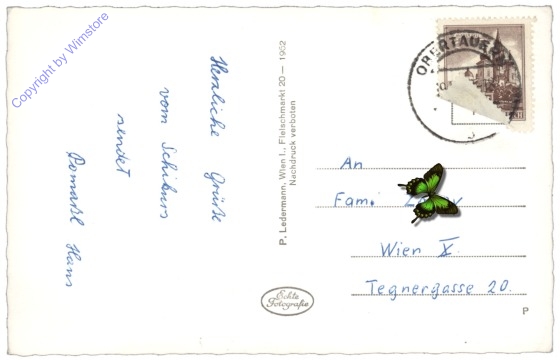 Copyright by Wimstore
Herzliche Grüße
vom Schikurs
sendet
Hans
P. Ledermann, Wien I., Fleischmarkt 20 — 1952
Nachdruck verboten
OBERTAUERN
An
Fam.
Wien X.
Tegnergasse 20.
Echte
Fotografie
P